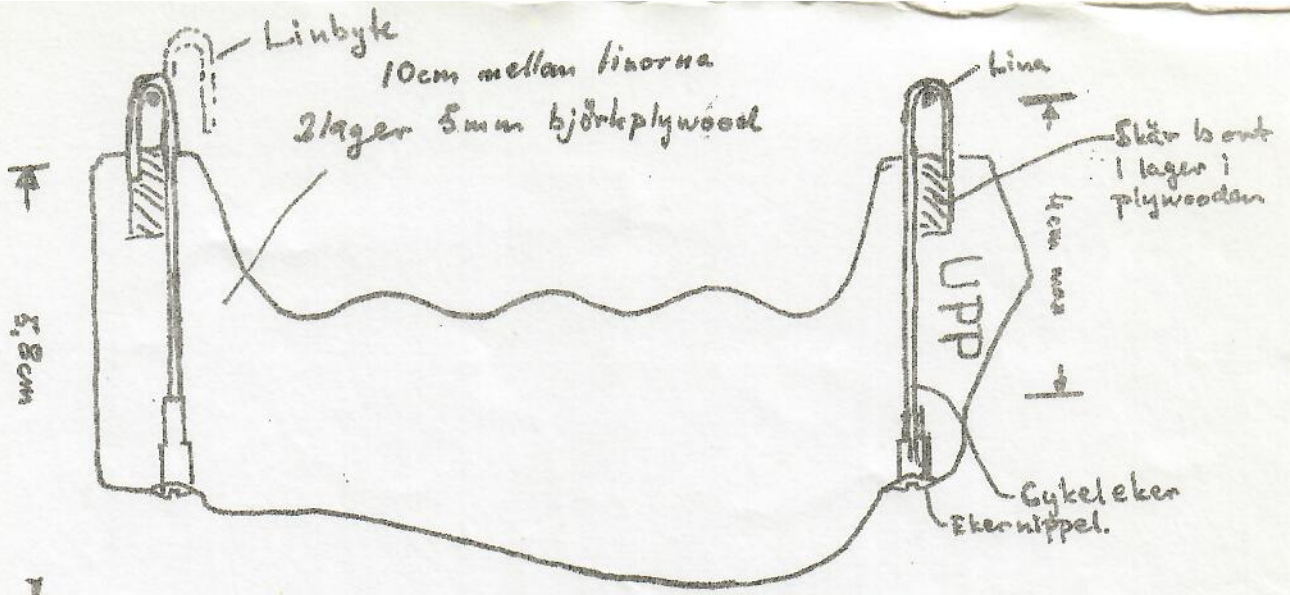 Linbyte
10cm mellan linorna
2 lager 5mm björkplywood
Lina
Skär bort
1 lager i
plywooden
4cm max
UPP
5,8cm
Cykeleker
Ekernippel.